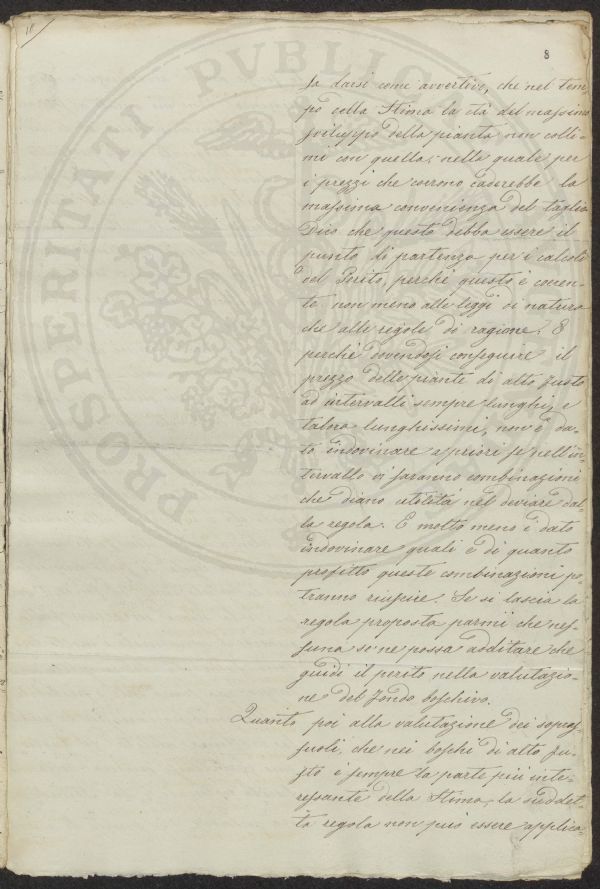 18
8
PROSPERITATI PVBLIC
da darsi come avvertive, che nel tem-
po della Stima la età del massimo
sviluppo della pianta non colli-
mi con quella, nella quale per
i prezzi che corrono caderebbe la
massima convenienza del taglio
Dico che questo debba essere il
punto di partenza per i calcoli
del Perito, perchè questo è coeren-
te non meno alle leggi di natura
che alle regole di ragione. E
perchè dovendosi conseguire il
prezzo delle piante di alto fusto
ad intervalli sempre lunghi, e
talora lunghissimi, non è da-
to indovinare a priori se nell'in-
tervallo vi saranno combinazioni
che diano utilità nel deviare dal-
la regola. E molto meno è dato
indovinare quali e di quanto
profitto queste combinazioni po-
tranno riuscire. Se si lascia la
regola proposta parmi che nes-
suna se ne possa additare che
guidi il perito nella valutazio-
ne del fondo boschivo.
Quanto poi alla valutazione dei sopras-
suoli, che nei boschi di alto fu-
sto è sempre la parte più inte-
ressante della Stima, la suddet-
ta regola non può essere applica-